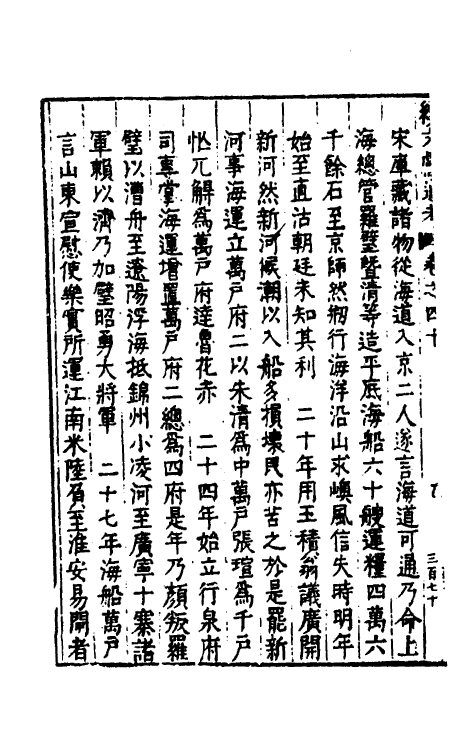 續文獻通考 卷之四十 三百七十
宋庫藏諸物從海道入京二人遂言海道可通乃命上
海總管羅璧暨清等造平底海船六十艘運糧四萬六
千餘石至京師然剏行海洋沿山求嶼風信失時明年
始至直沽朝廷未知其利 二十年用王積翁議廣開
新河然新河候潮以入船多損壞民亦苦之於是罷新
河事海運立萬戶府二以朱清為中萬戶張瑄為千戶
忙兀觧為萬戶府達魯花赤 二十四年始立行泉府
司專掌海運增置萬戶府二總為四府是年乃顏叛羅
璧以漕舟至遼陽浮海抵錦州小凌河至廣寧十寨諸
軍賴以濟乃加璧昭勇大將軍 二十七年海船萬戶
言山東宣慰使樂實所運江南米陸負至淮安易閘者